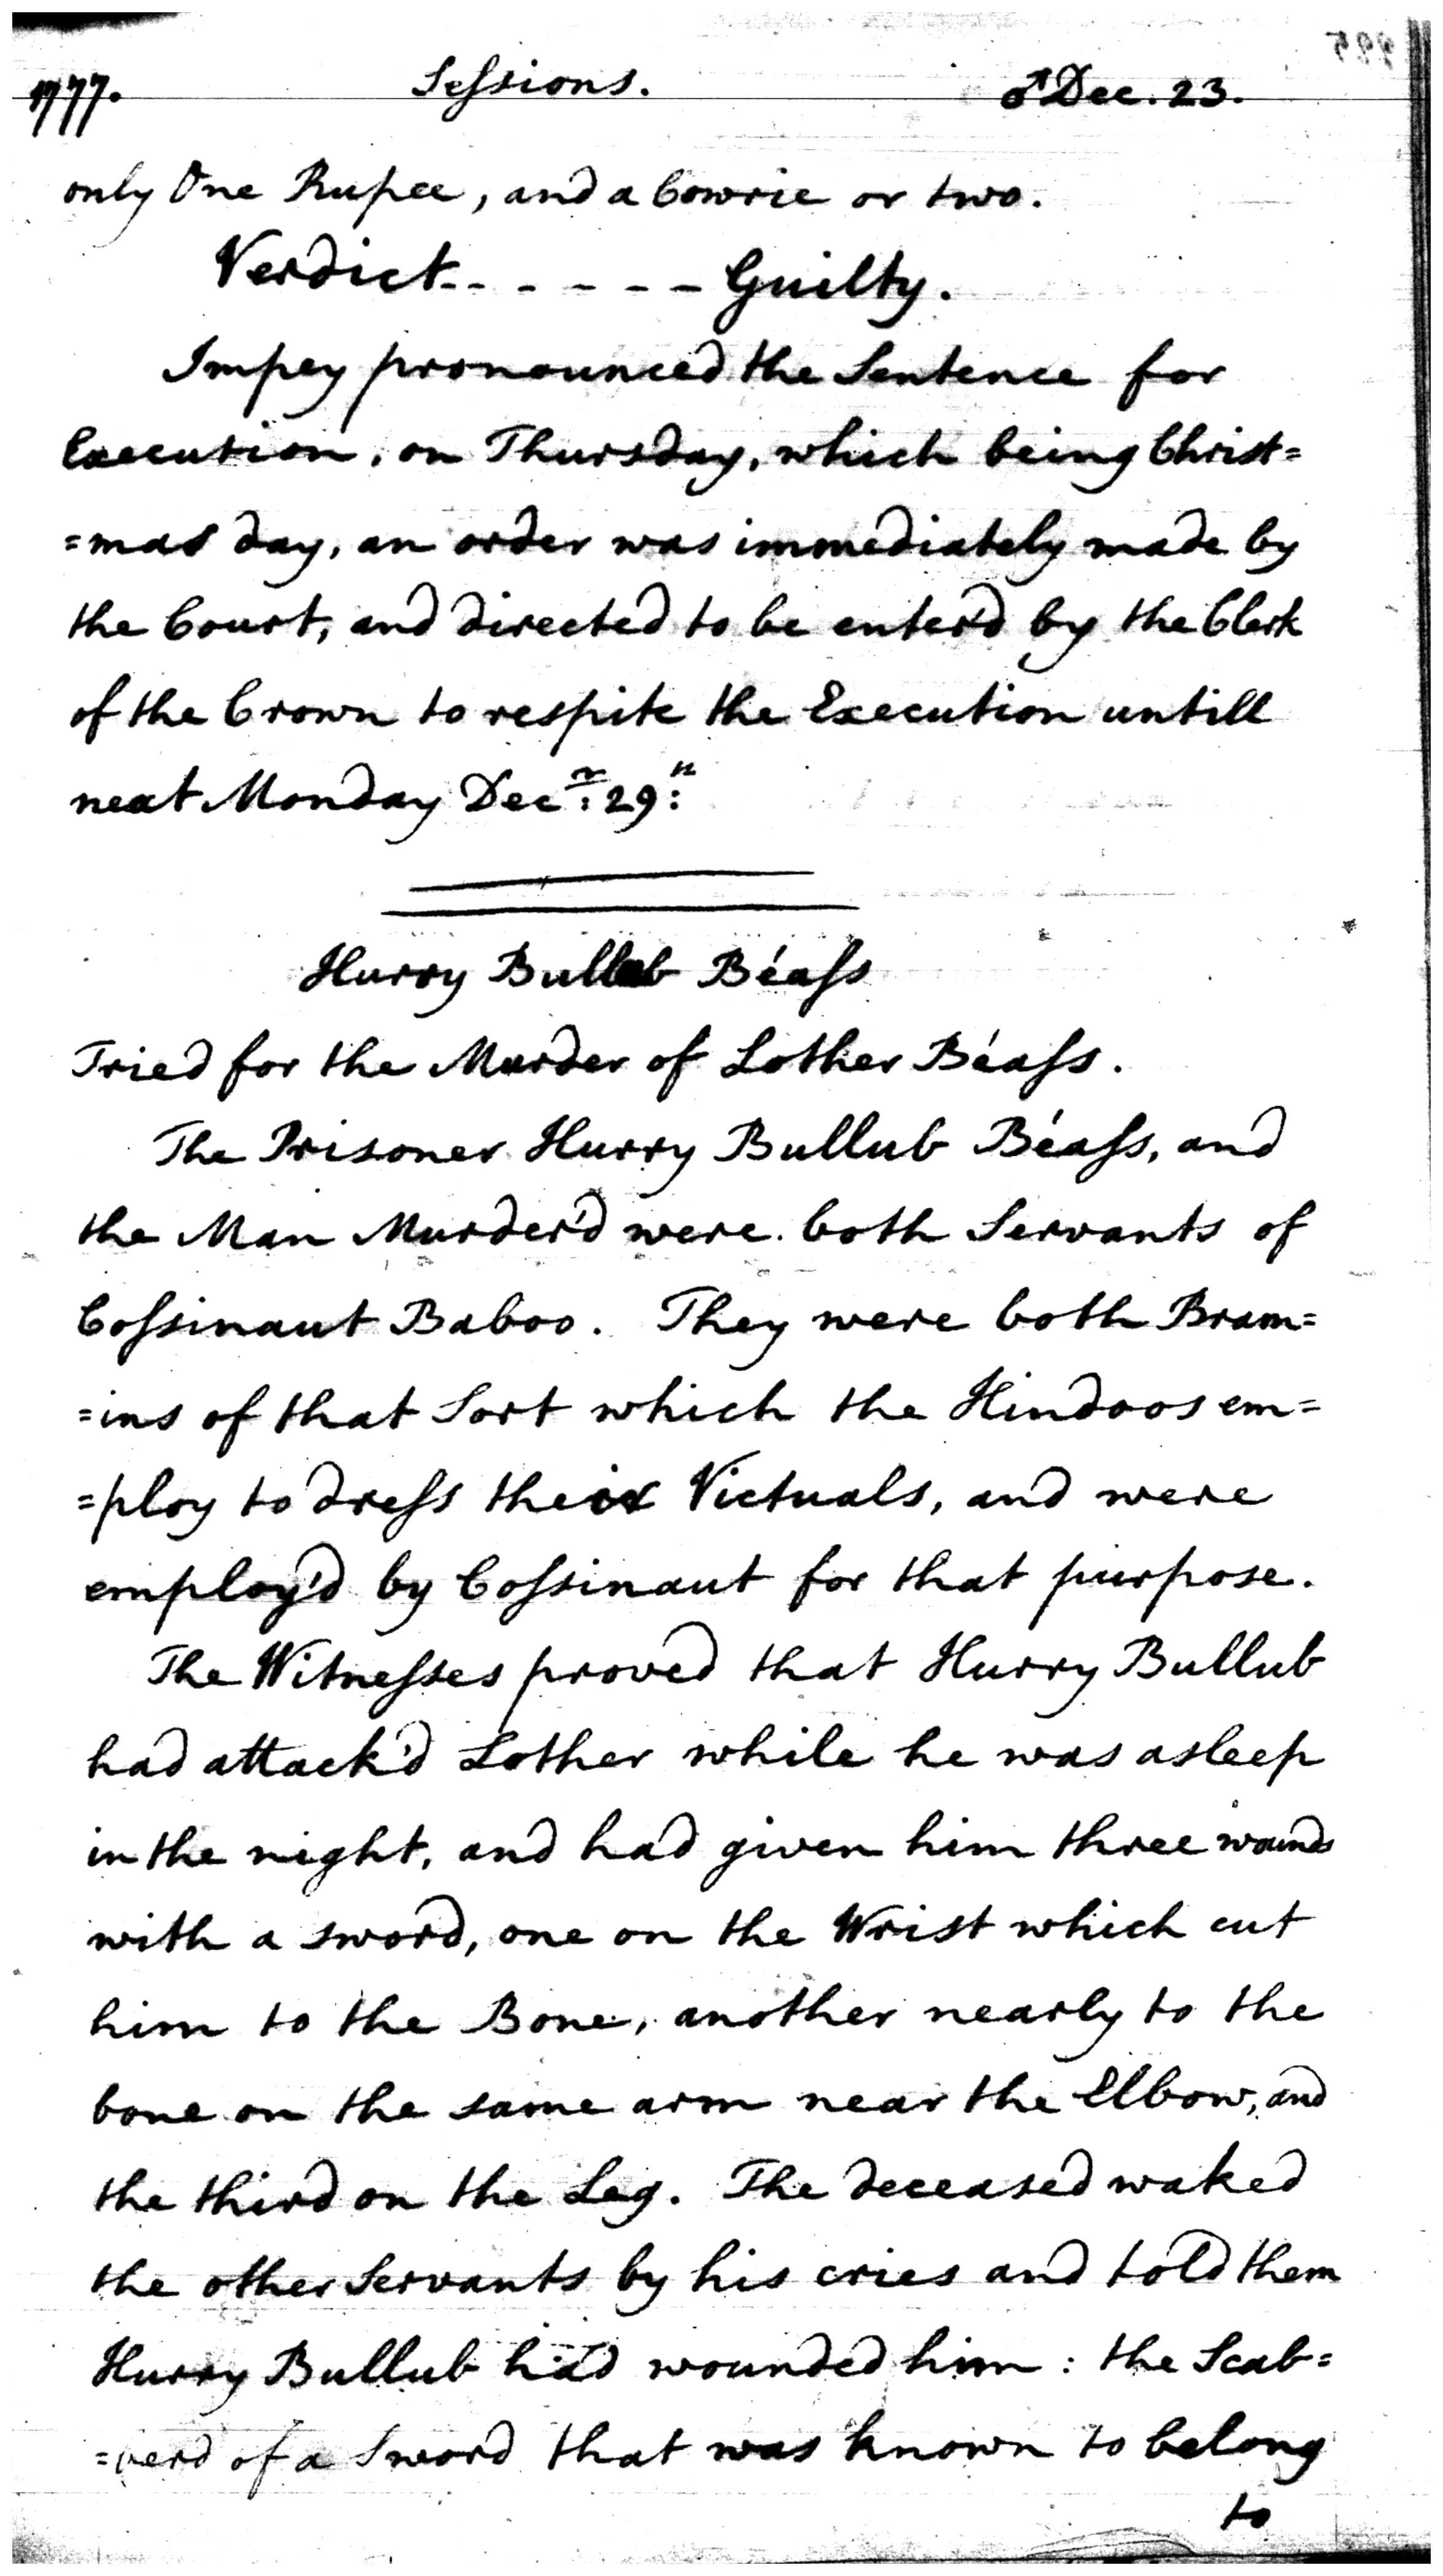 1777. Sessions. ♂ Dec. 23.
only One Rupee, and a Cowrie or two.
Verdict - - - - - - Guilty.
Impey pronounced the Sentence for
Execution, on Thursday, which being Christ=
=mas day, an order was immediately made by
the Court, and directed to be enter'd by the Clerk
of the Crown to respite the Execution untill
next Monday Decr: 29th:
Hurry Bullub Béaſs
Tried for the Murder of Lother Béaſs.
The Prisoner Hurry Bullub Béaſs, and
the Man Murder'd were both Servants of
Coſsinaut Baboo. They were both Bram=
=ins of that Sort which the Hindoos em=
=ploy to dreſs their Victuals, and were
employ'd by Coſsinaut for that purpose.
The Witneſses proved that Hurry Bullub
had attack'd Lother while he was asleep
in the night, and had given him three wounds
with a sword, one on the Wrist which cut
him to the Bone, another nearly to the
bone on the same arm near the Elbow, and
the third on the Leg. The deceased waked
the other Servants by his cries and told them
Hurry Bullub had wounded him: the Scab=
=berd of a Sword that was known to belong
to